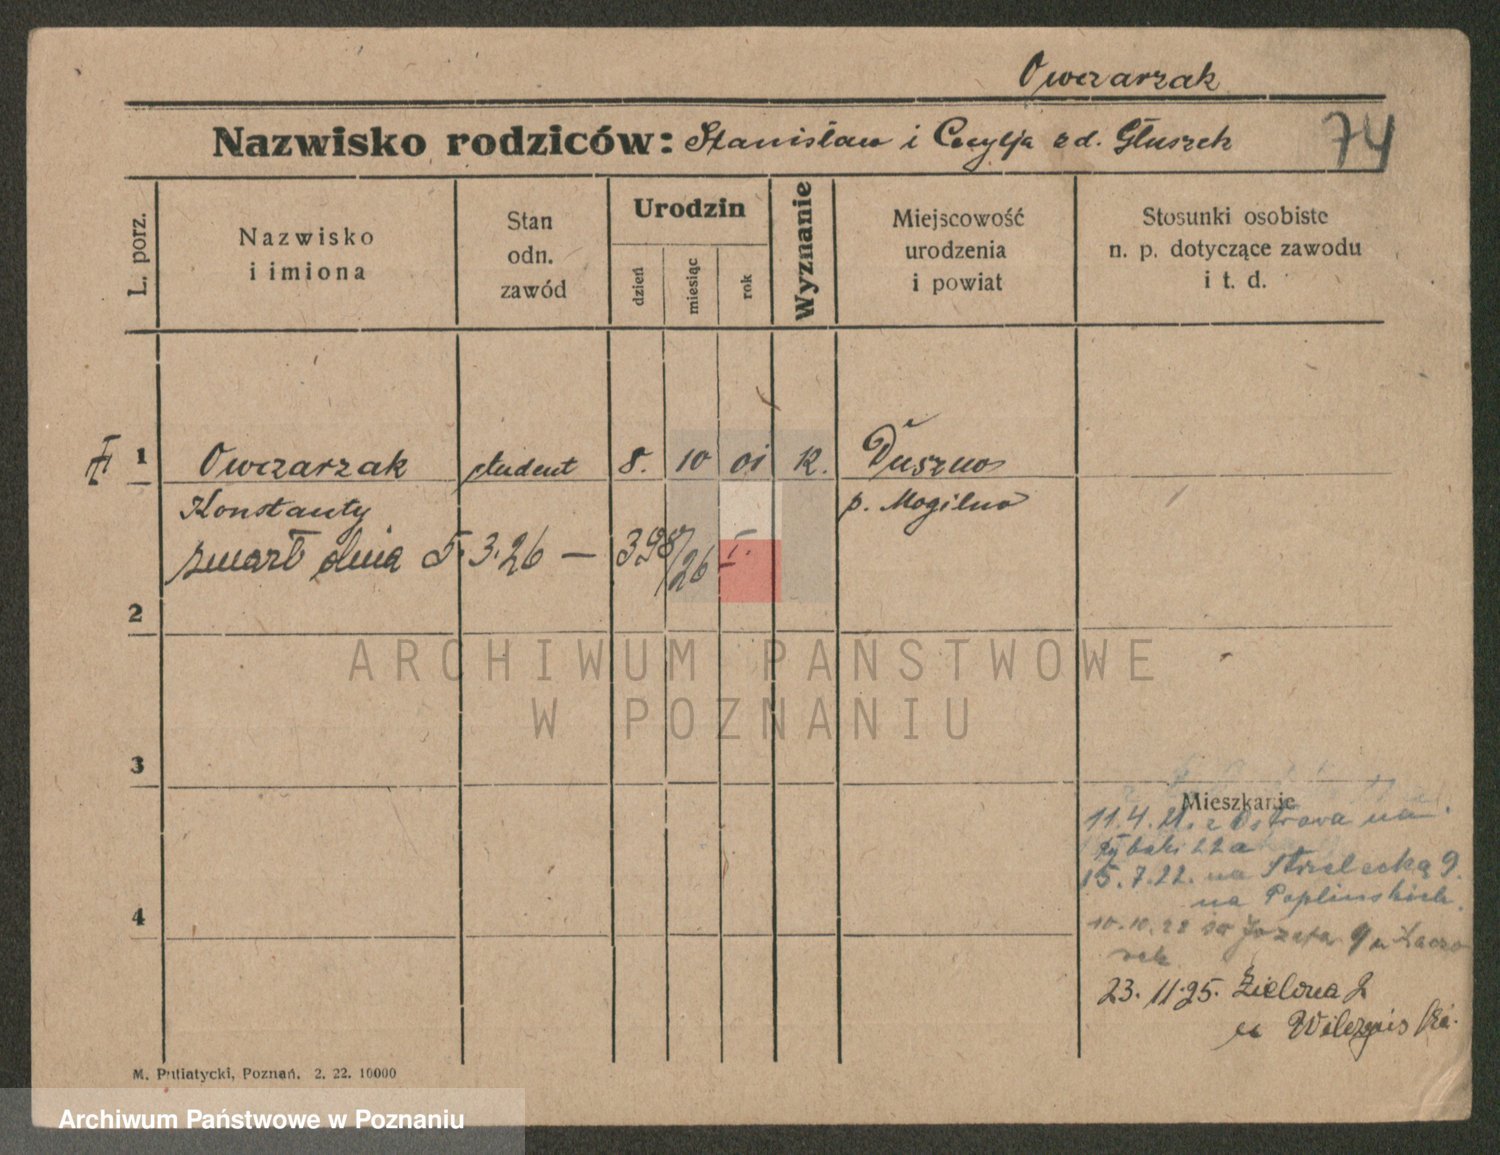 Owczarzak
Nazwisko rodziców: Stanisław i Cecylja zd. Głuszek 74
L. porz.
Nazwisko
i imiona
Stan
odn.
zawód
Urodzin
dzień
miesiąc
rok
Wyznanie
Miejscowość
urodzenia
i powiat
Stosunki osobiste
n. p. dotyczące zawodu
i t. d.
1 Owczarzak student 8. 10 01 K. Duszno
Konstanty p. Mogilno
zmarł dnia 5.3.26 — 398/26 I.
2
ARCHIWUM PAŃSTWOWE
W POZNANIU
3
Mieszkanie
11.4. z Ostrowa na
Rybaki 22a
15.7.22. na Strzelecką 9.
na Poplińskich.
4
10.10.22 Józefa 9 u
23.11.25. Zielona 2
u
M. Putiatycki, Poznań. 2. 22. 10000
Archiwum Państwowe w Poznaniu